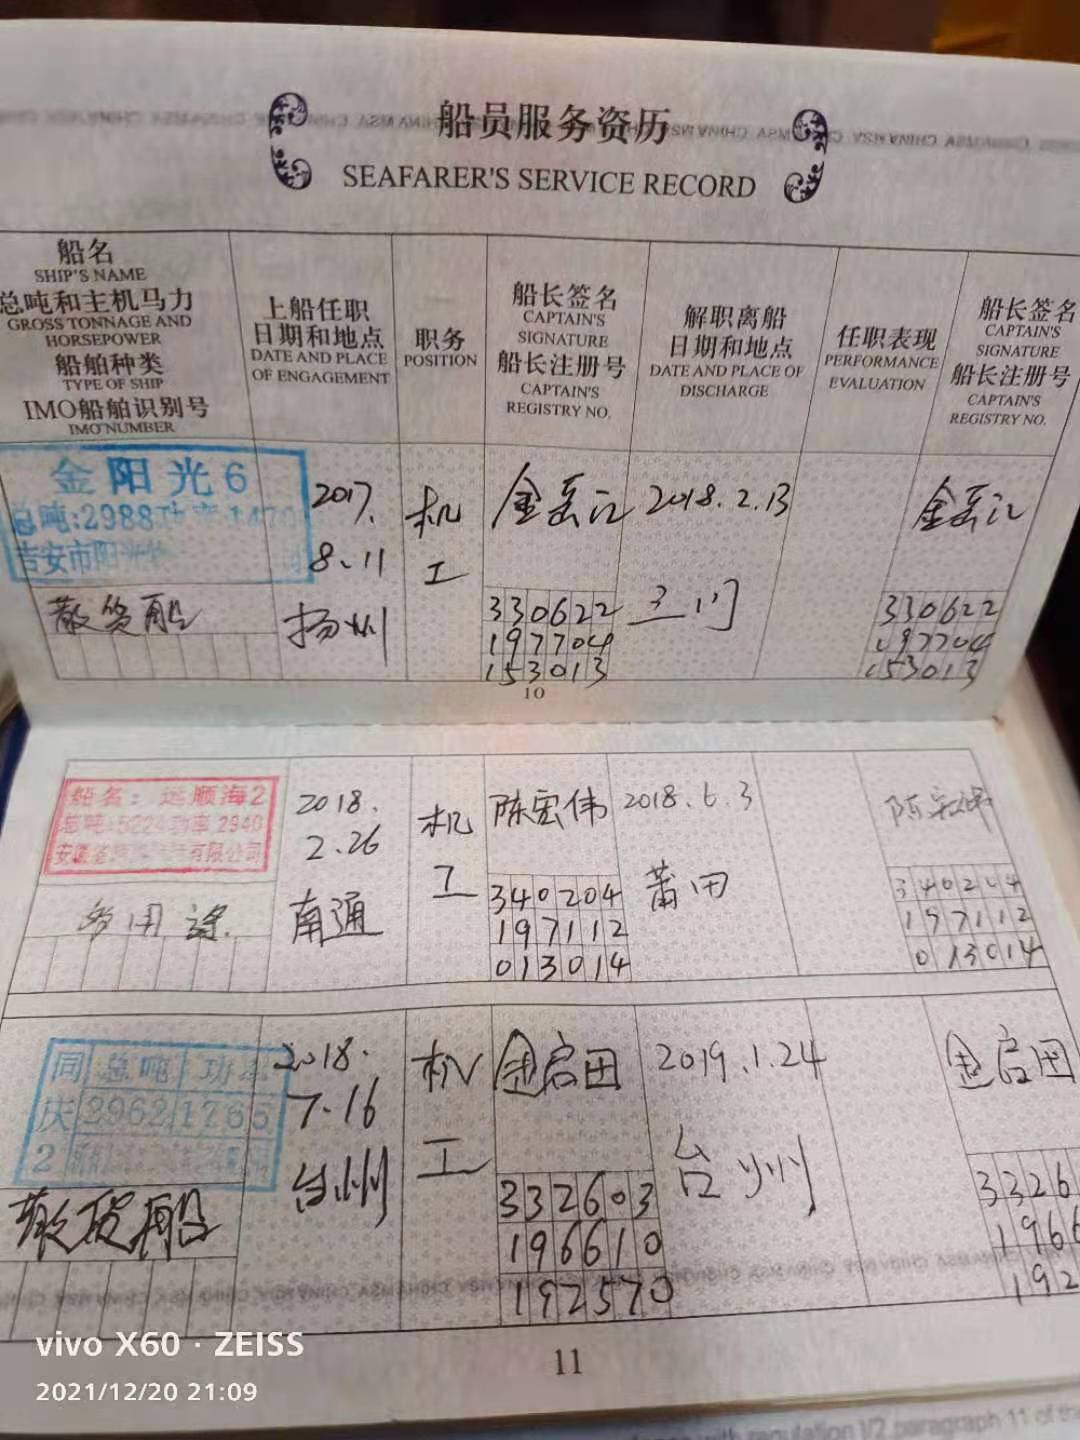 船员服务资历
SEAFARER'S SERVICE RECORD
船名
SHIP'S NAME
总吨和主机马力
GROSS TONNAGE AND
HORSEPOWER
船舶种类
TYPE OF SHIP
IMO船舶识别号
IMO NUMBER
上船任职
日期和地点
DATE AND PLACE
OF ENGAGEMENT
职务
POSITION
船长签名
CAPTAIN'S
SIGNATURE
船长注册号
CAPTAIN'S
REGISTRY NO.
解职离船
日期和地点
DATE AND PLACE OF
DISCHARGE
任职表现
PERFORMANCE
EVALUATION
船长签名
CAPTAIN'S
SIGNATURE
船长注册号
CAPTAIN'S
REGISTRY NO.
金阳光6
总吨:2988功率:1470
吉安市阳光
散货船
2017.
8.11
扬州
机
工
金
330622
197704
153013
2018.2.13
三门
金
330622
197704
153013
10
船名：运顺海2
总吨:5224功率2940
安徽省 有限公司
多用途
2018.
2.26
南通
机
工
陈宏伟
340204
197112
013014
2018.6.3
莆田
陈宏伟
340204
197112
013014
同 总吨 功率
庆 2962 1765
2
散货船
2018.
7.16
台州
机
工
启田
332603
196610
192570
2019.1.24
台州
启田
3326
1966
192
11
vivo X60 · ZEISS
2021/12/20 21:09
with regulation I/2 paragraph 11 of the